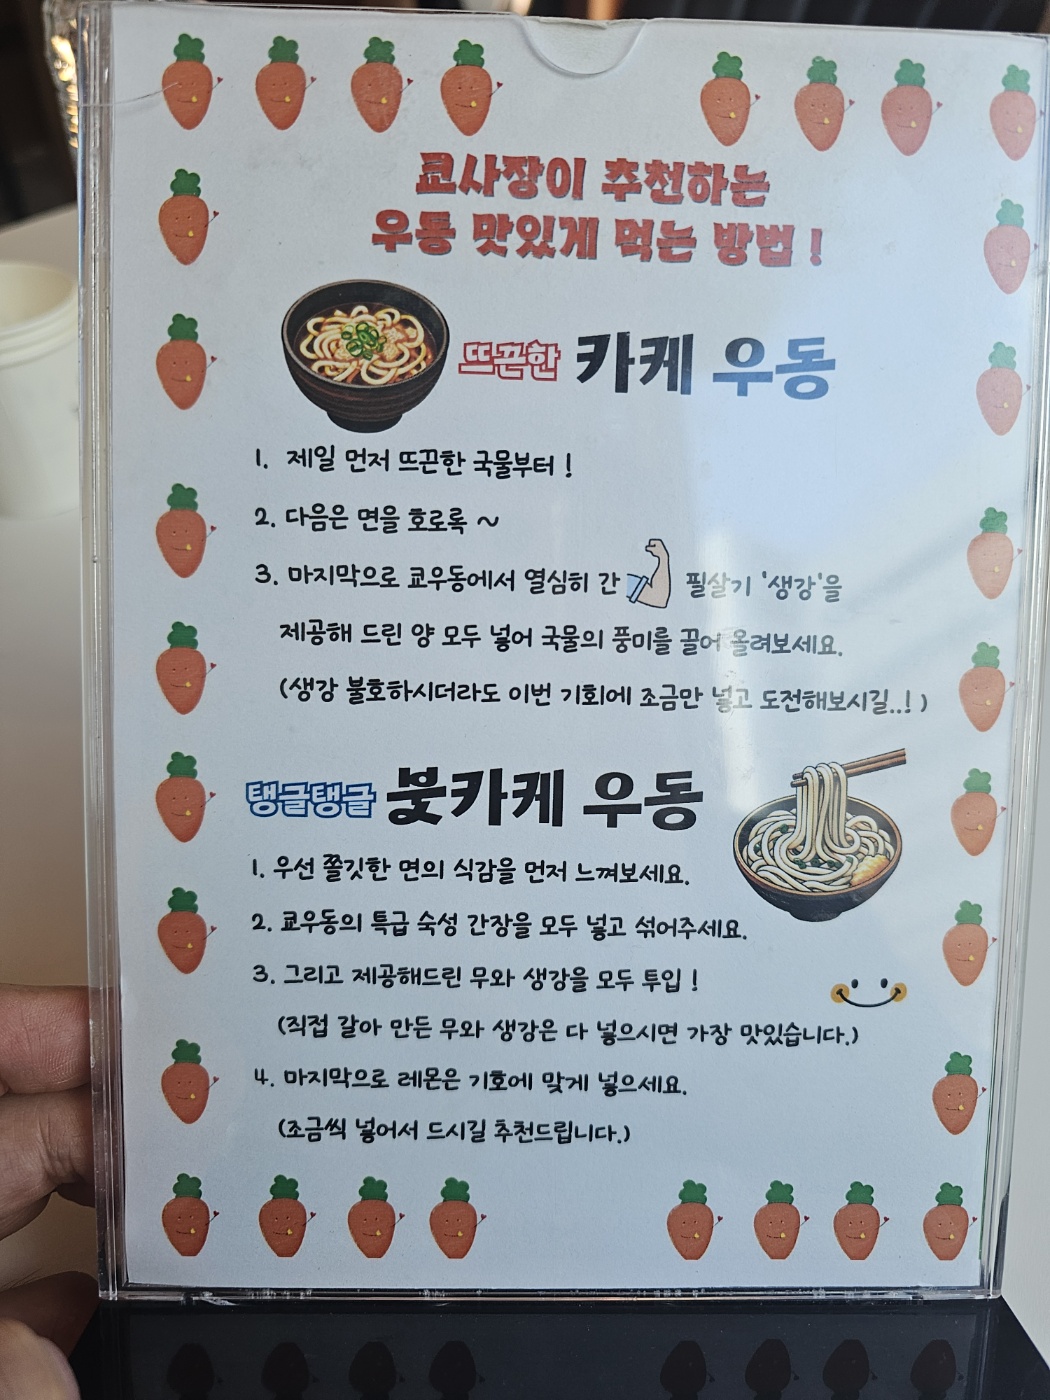 쿄사장이 추천하는
우동 맛있게 먹는 방법!
뜨끈한 카케 우동
1. 제일 먼저 뜨끈한 국물부터!
2. 다음은 면을 호로록~
3. 마지막으로 쿄우동에서 열심히 간 필살기 '생강'을
제공해 드린 양 모두 넣어 국물의 풍미를 끌어올려보세요.
(생강 불호하시더라도 이번 기회에 조금만 넣고 도전해보시길..!)
탱글탱글 붓카케 우동
1. 우선 쫄깃한 면의 식감을 먼저 느껴보세요.
2. 쿄우동의 특급 숙성 간장을 모두 넣고 섞어주세요.
3. 그리고 제공해드린 무와 생강을 모두 투입!
(직접 갈아 만든 무와 생강은 다 넣으시면 가장 맛있습니다.)
4. 마지막으로 레몬은 기호에 맞게 넣으세요.
(조금씩 넣어서 드시길 추천드립니다.)